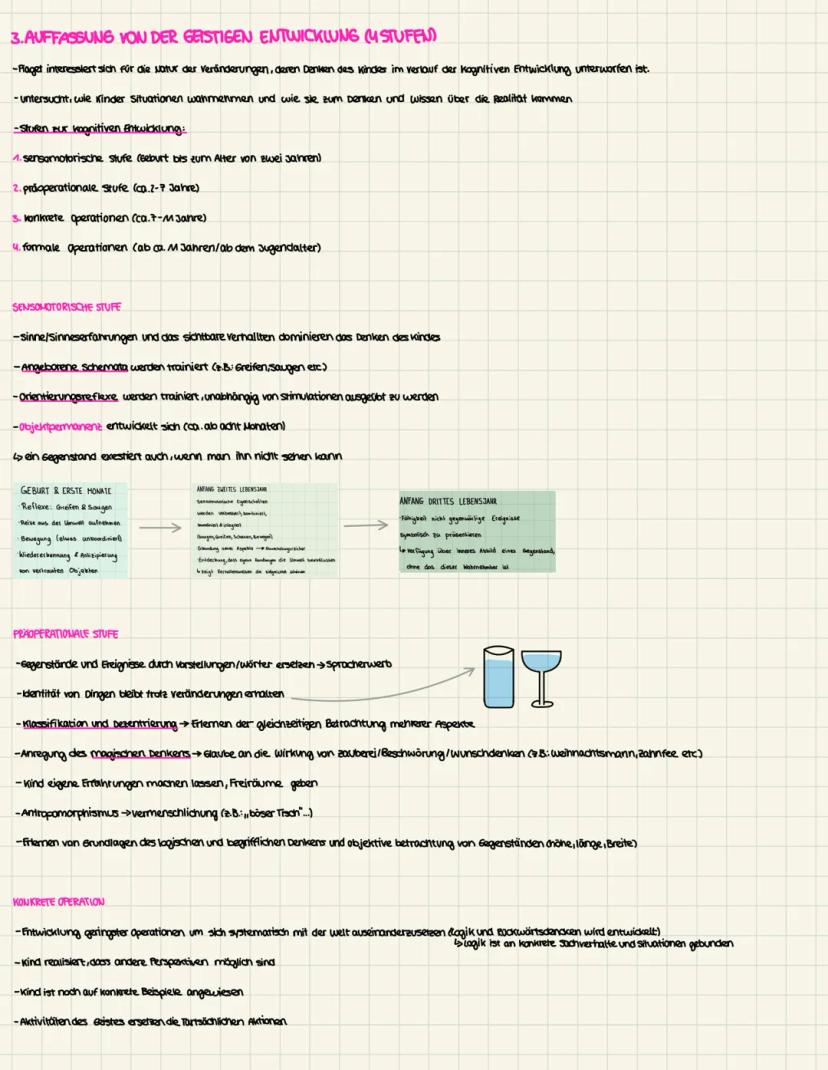 3.AUFFASSUNG VON DER GEISTIGEN ENTWICKLUNG (4 STUFEN)
-Piaget interessiert sich für die Natur der Veränderungen, deren Denken des Kindes im verlauf der Kognitiven Entwicklung unterworfen ist.
-untersucht, wie Kinder Situationen wahrnehmen und wie sie zum Denken und Wissen über die Realität kommen
-Stufen zur kognitiven Entwicklung:
1. sensomotorische Stufe (Geburt bis zum Alter von zwei Jahren)
2. präoperationale Stufe (ca.2-7 Jahre)
3. konkrete Operationen (ca.7-11 Jahre)
4. formale Operationen (ab ca. 11 Jahren/ab dem Jugendalter)
SENSOMOTORISCHE STUFE
-Sinne/Sinneserfahrungen und das sichtbare Verhallten dominieren das Denken des Kindes
-Angeborene Schemata werden trainiert (z.B: Greifen, Saugen etc)
-Orientierungsreflexe werden trainiert, unabhängig von Stimulationen ausgeübt zu werden
-Objektpermanenz entwickelt sich (ca. ab acht Monaten)
↳ ein Gegenstand exestiert auch, wenn man ihn nicht sehen kann
GEBURT & ERSTE MONATE
·Reflexe: Greifen & Saugen
·Reize aus der Umwelt aufnehmen
·Bewegung (etwas unkoordiniert)
·Wiedererkennung & Antizipierung
von vertrauten Objekten
ANFANG ZWEITES LEBENSJAHR
Sensomotorische Eigenschaften
werden verbessert, kombiniert,
koordiniert & integriert
(Saugen, Greifen, Schauen, Bewegen)
ANFANG DRITTES LEBENSJAHR
·Fähigkeit nicht gegenwärtige Ereignisse
symbolisch zu präsentieren
↳ Verfügung über inneres Abbild eines Gegenstand,
ohne das dieser Wahrnehmbar ist
PRÄOPERATIONALE STUFE
-Gegenstände und Ereignisse durch Vorstellungen/Wörter ersetzen → Spracherwerb
-Identität von Dingen bleibt trotz Veränderungen erhalten
-Klassifikation und Dezentrierung → Erlernen der gleichzeitigen Betrachtung mehrerer Aspekte
-Anregung des magischen Denkens → Glaube an die Wirkung von Zauberei/Beschwörung/Wunschdenken (z.B: Weihnachtsmann, Zahnfee etc)
-Kind eigene Erfahrungen machen lassen, Freiräume geben
-Antropomorphismus → Vermenschlichung (z.B: „böser Tisch"...)
-Erlernen von Grundlagen des logischen und begrifflichen Denkens und objektive betrachtung von Gegenständen (höhe, länge, Breite)
KONKRETE OPERATION
-Entwicklung geringster Operationen um sich systematisch mit der Welt auseinanderzusetzen (Logik und Rückwärtsdencken wird entwickelt)
↳ Logik ist an konkrete Sachverhalte und Situationen gebunden
-Kind realisiert, dass andere Perspektiven möglich sind
-Kind ist noch auf konkrete Beispiele angewiesen
-Aktivitäten des Geistes ersetzen die Tartsächlichen Aktionen